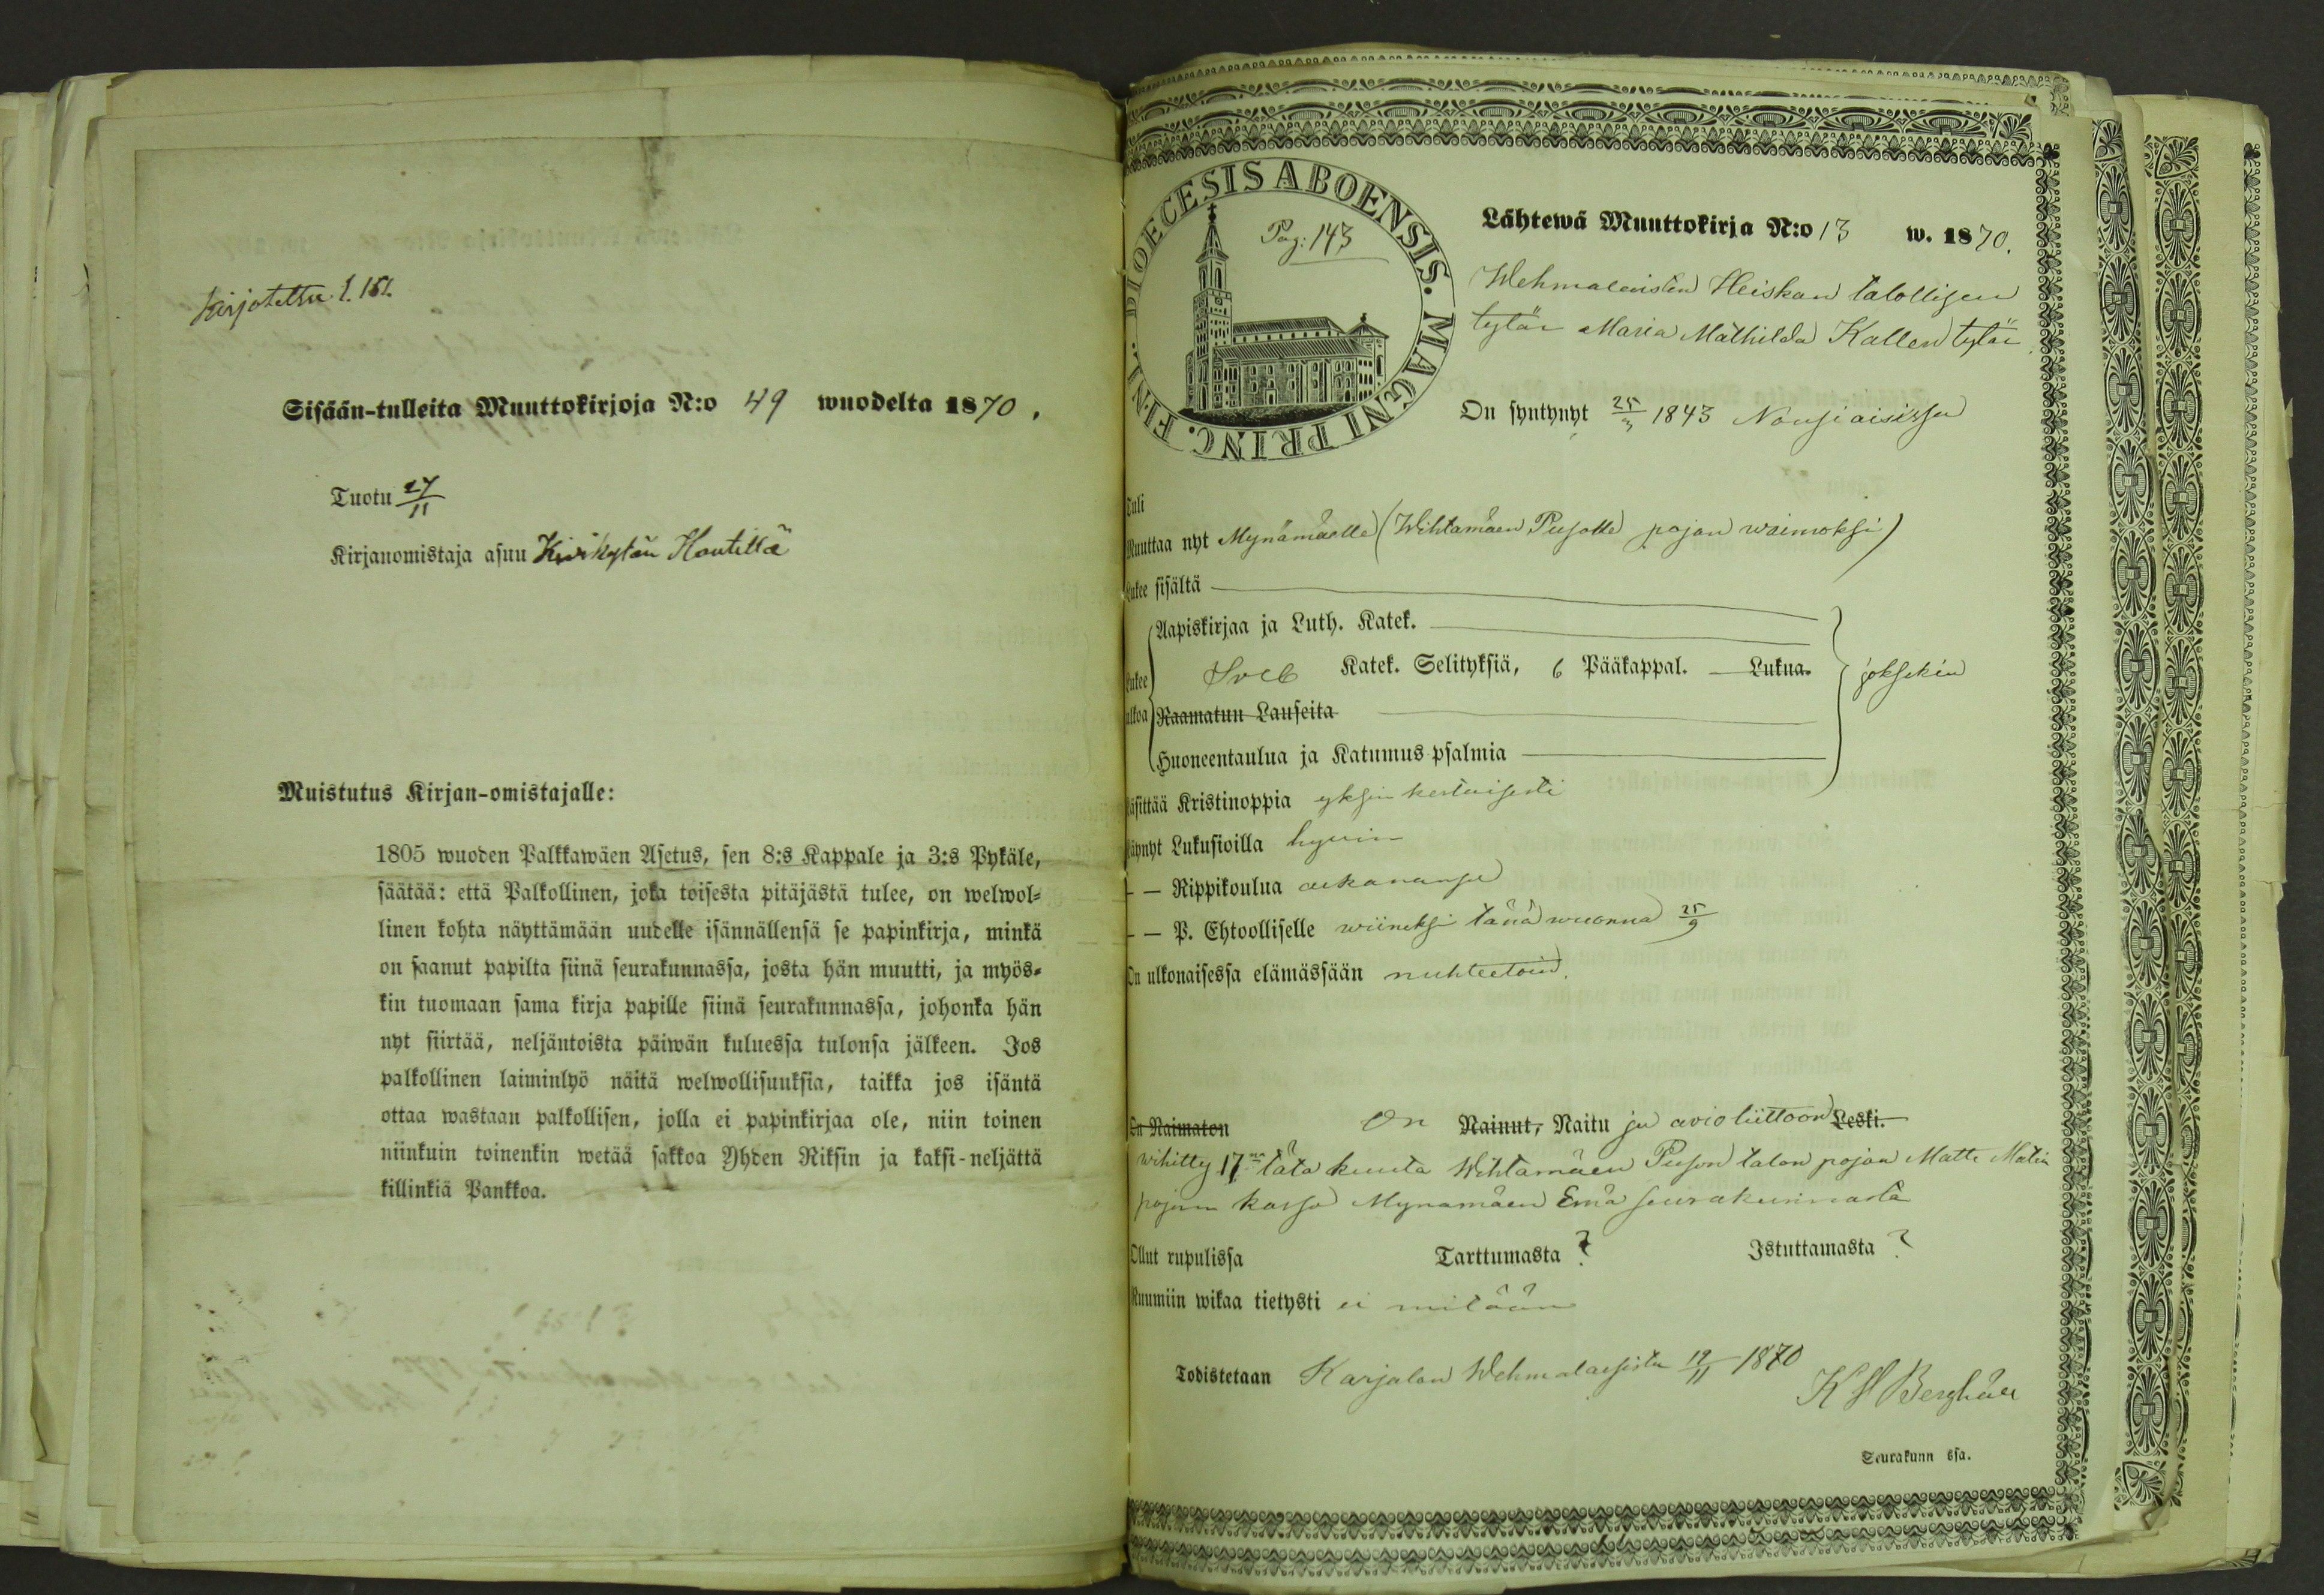 Kirjotettu S. 151.
Sisään-tulleita Muuttokirjoja N:o 49 wuodelta 1870.
Tuotu 27/11
Kirjanomistaja asuu Kivikylän Hantillä
Muistutus Kirjan-omistajalle:
1805 wuoden Palkkawäen Asetus, sen 8:s Kappale ja 3:s Pykäle,
säätää: että Palkollinen, joka toisesta pitäjästä tulee, on welwol-
linen kohta näyttämään uudelle isännällensä se papinkirja, minkä
on saanut papilta siinä seurakunnassa, josta hän muutti, ja myös-
kin tuomaan sama kirja papille siinä seurakunnassa, johonka hän
nyt siirtää, neljäntoista päiwän kuluessa tulonsa jälkeen. Jos
palkollinen laiminlyö näitä welwollisuuksia, taikka jos isäntä
ottaa wastaan palkollisen, jolla ei papinkirjaa ole, niin toinen
niinkuin toinenkin wetää sakkoa Yhden Riksin ja kaksi-neljättä
killinkiä Pankkoa.
DIOECESIS ABOENSIS. MAGNI PRINC. FINL.
Pag: 143
Lähtewä Muuttokirja N:o 13 w. 1870.
Wehmalaisten Heiskan talollisen
tytär Maria Mathilda Kallen tytär
On syntynyt 25/3 1843 Nousiaisissa
Tuli
Muuttaa nyt Mynämäelle (Wihtamäen Pusolle pojan waimoksi)
Lukee sisältä
Aapiskirjaa ja Luth. Katek.
Lukee Sveb Katek. Selityksiä, 6 Pääkappal. Lukua. joksikin
ulkoa Raamatun Lauseita
Huoneentaulua ja Katumus-psalmia
Käsittää Kristinoppia yksinkertaisesti
Käynyt Lukusioilla hywin
— — Rippikoulua aikanansa
— — P. Ehtoolliselle wiimeksi tänä wuonna 25/9
On ulkonaisessa elämässään nuhteetoin.
On Naimaton On Nainut, Naitu ja avioliittoon Leski.
wihitty 17 tätä kuuta Wihtamäen Puson talon pojan Matti Matin
pojan kassa Mynämäen Emä seurakunnasta
Ollut rupulissa Tarttumasta ? Istuttamasta ?
Ruumiin wikaa tietysti ei mitään
Todistetaan Karjalan Wehmalaisista 19/11 1870
Berghäll
Seurakunn ssa.